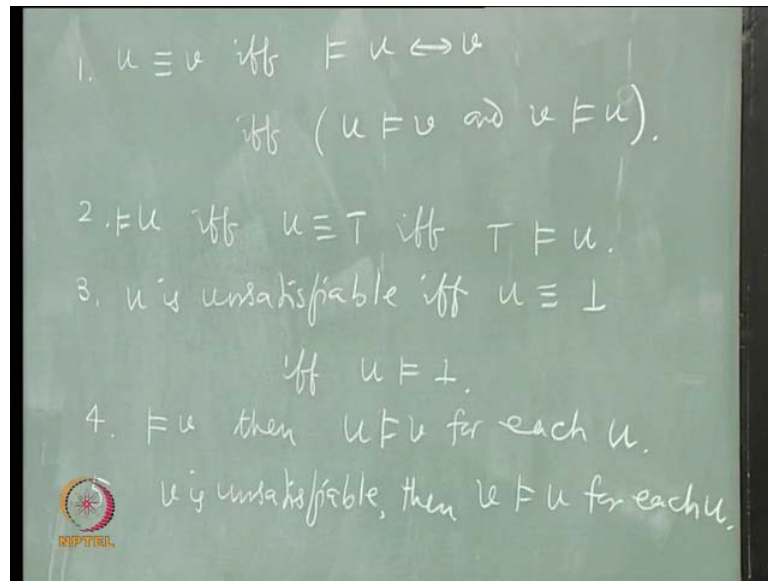 1. u ≡ v iff ⊨ u ↔ v
iff (u ⊨ v and v ⊨ u).
2. ⊨ u iff u ≡ ⊤ iff ⊤ ⊨ u.
3. u is unsatisfiable iff u ≡ ⊥
iff u ⊨ ⊥.
4. ⊨ v then u ⊨ v for each u.
5 v is unsatisfiable, then v ⊨ u for each u.
NPTEL